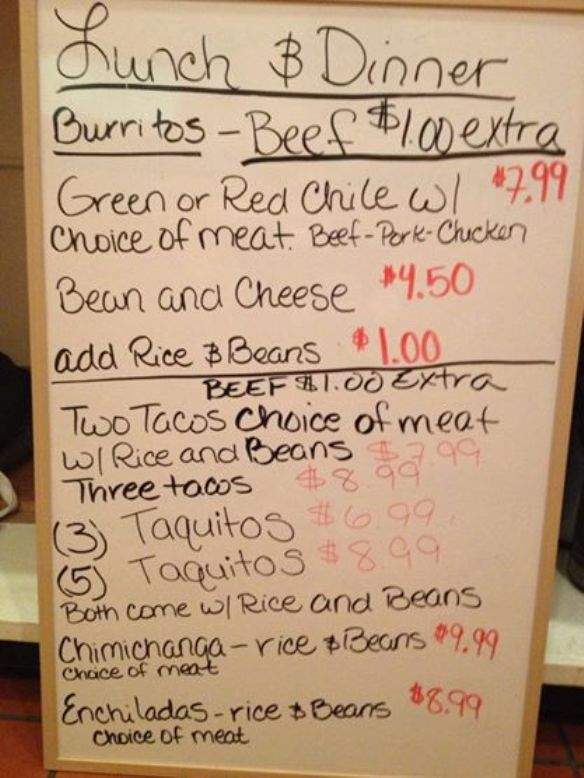 Lunch & Dinner
Burritos - Beef $1.00 extra
Green or Red Chile w/ $7.99
Choice of meat. Beef-Pork-Chicken
Bean and Cheese $4.50
add Rice & Beans $1.00
BEEF $1.00 Extra
Two Tacos choice of meat
w/ Rice and Beans $7.99
Three tacos $8.99
(3) Taquitos $6.99
(5) Taquitos $8.99
Both come w/ Rice and Beans
Chimichanga - rice & Beans $9.99
choice of meat
Enchiladas - rice & Beans $8.99
choice of meat